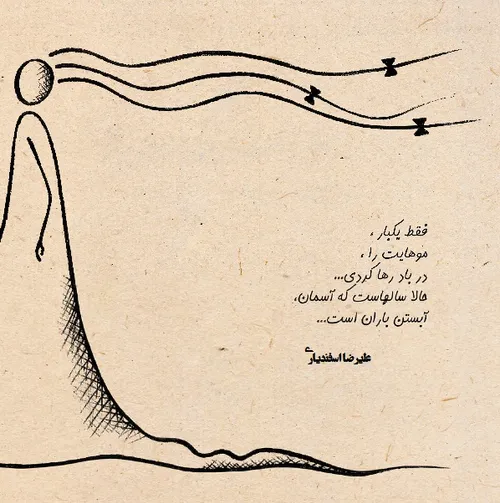 فقط یکبار ،
موهایت را ،
در باد رها کردی...
حالا سالهاست که آسمان،
آبستن باران است...
علیرضا اسفندیاری